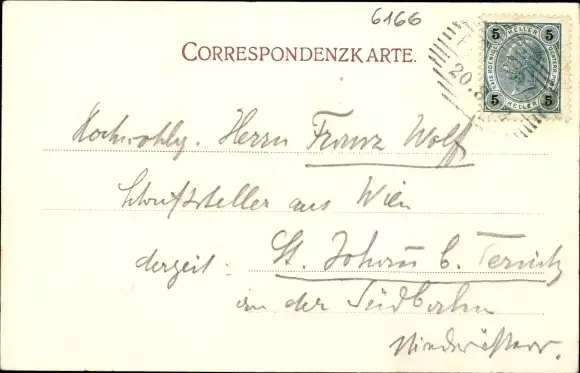 6166
CORRESPONDENZKARTE.
5 HELLER 5
20.8
5 HELLER 5
Hochwohlg. Herrn Franz Wolff
Schriftsteller aus Wien
derzeit: St. Johann b. Ternitz
an der Südbahn
Niederösterr.